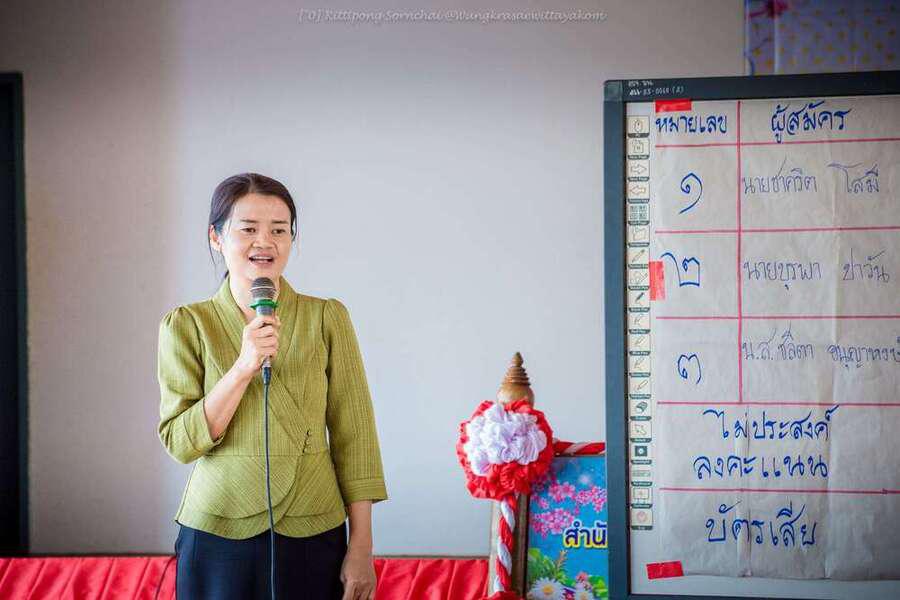 ['0] Rittipong Sornchai @Wungkrasaewittayakom
หมายเลข ผู้สมัคร
๑ นายชาคริต โสมี
๒ นายบุรพา ปาวัน
๓ น.ส. ชลิตา
ไม่ประสงค์
ลงคะแนน
บัตรเสีย
สำนั